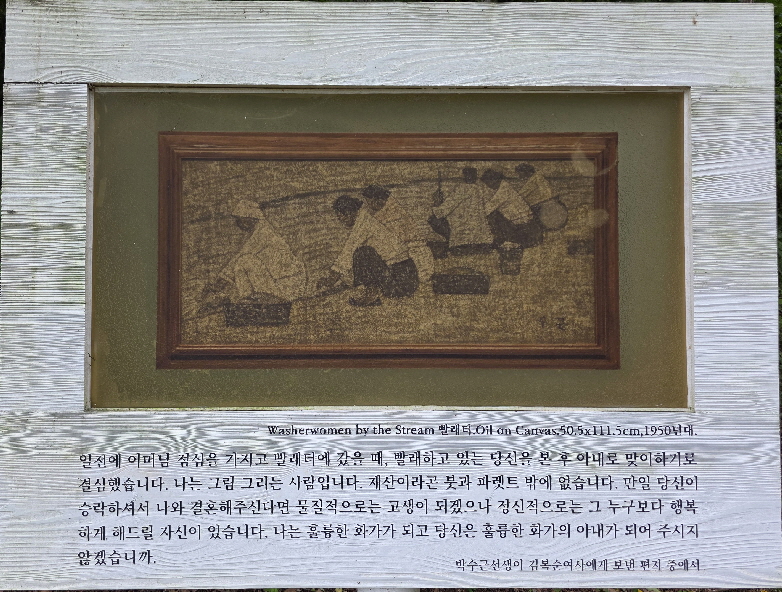 Washerwomen by the Stream 빨래터,Oil on Canvas,50.5x111.5cm,1950년대.
일전에 어머님 점심을 가지고 빨래터에 갔을 때, 빨래하고 있는 당신을 본 후 아내로 맞이하기로
결심했습니다. 나는 그림 그리는 사람입니다. 재산이라곤 붓과 파렛트 밖에 없습니다. 만일 당신이
승락하셔서 나와 결혼해주신다면 물질적으로는 고생이 되겠으나 정신적으로는 그 누구보다 행복
하게 해드릴 자신이 있습니다. 나는 훌륭한 화가가 되고 당신은 훌륭한 화가의 아내가 되어 주시지
않겠습니까.
박수근선생이 김복순여사에게 보낸 편지 중에서